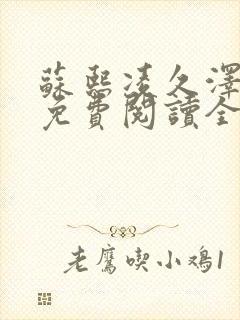 蘇熙凌久澤
免費閱讀全
老鷹喫小鸡1